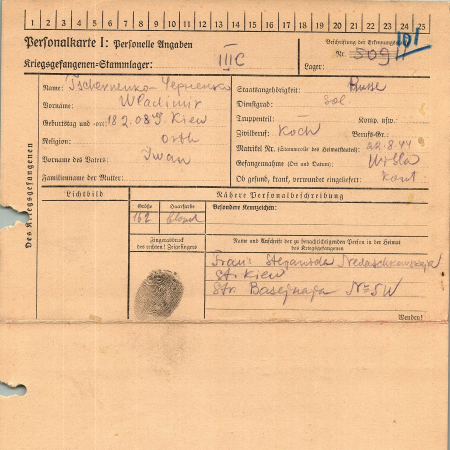 1 2 3 4 5 6 7 8 9 10 11 12 13 14 15 16 17 18 19 20 21 22 23 24 25
Personalkarte I: Personelle Angaben
Kriegsgefangenen-Stammlager: III C
Beschriftung der Erkennungsmarke
Nr. 5091
Lager:
Des Kriegsgefangenen
Name: Tschernenko Черненко
Vorname: Wladimir
Geburtstag und -ort: Kiew
Religion: orth
Vorname des Vaters: Iwan
Familienname der Mutter:
Staatsangehörigkeit: Russe
Dienstgrad: Sol.
Truppenteil: Komp. usw.:
Zivilberuf: Koch Berufs-Gr.:
Matrikel Nr. (Stammrolle des Heimatstaates): 22.8.44
Gefangennahme (Ort und Datum):
Ob gesund, krank, verwundet eingeliefert:
Lichtbild
Nähere Personalbeschreibung
Größe Haarfarbe
162 blond
Besondere Kennzeichen:
Fingerabdruck
des rechten! Zeigefingers
Name und Anschrift der zu benachrichtigenden Person in der Heimat
des Kriegsgefangenen
St. Kiew
Str. Basejnaja №
Wenden!